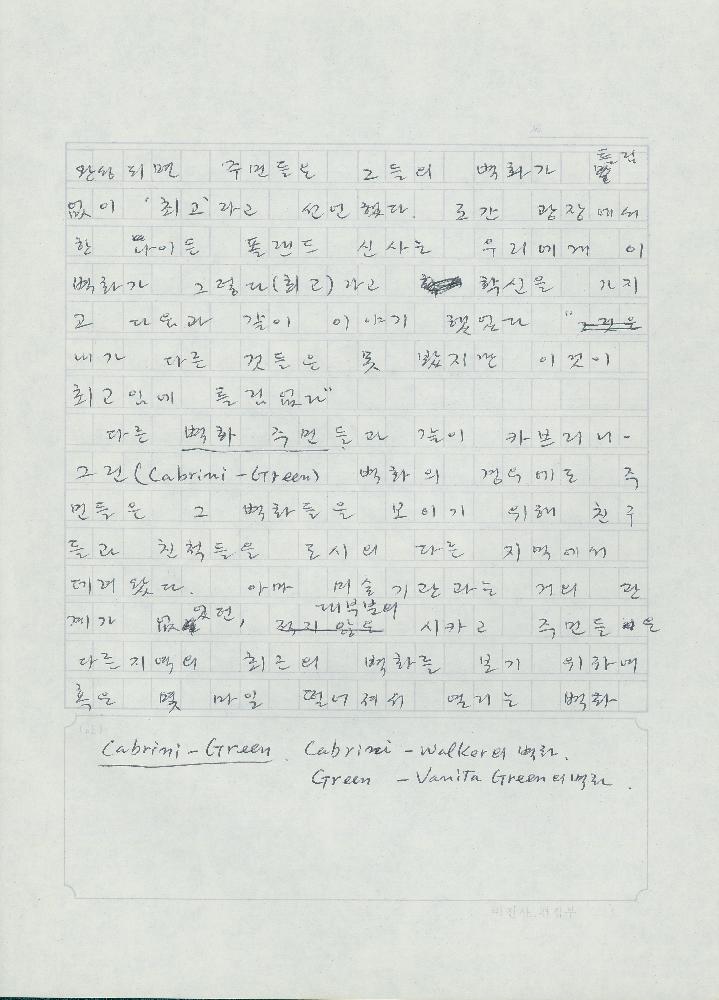 완성되면 주민들은 그들의 벽화가 틀림
없이 '최고'라고 선언했다. 로간 광장에서
한 나이든 폴랜드 신사는 우리에게 이
벽화가 그렇다(최고)라고 확신을 가지
고 다음과 같이 이야기 했었다 "그것은
내가 다른 것들은 못 봤지만 이것이
최고임에 틀림없다"
다른 벽화 주민들과 같이 카브리니-
그린(Cabrini-Green) 벽화의 경우에도 주
민들은 그 벽화들을 보이기 위해 친구
들과 친척들을 도시의 다른 지역에서
데려 왔다. 아마 미술기관과는 거의 관
계가 없었던, 대부분의 시카고 주민들은
다른지역의 최근의 벽화를 보기 위하여
혹은 몇 마일 떨어져서 열리는 벽화
Cabrini-Green. Cabrini - Walker의 벽화.
Green - Vanita Green의 벽화.
편집부